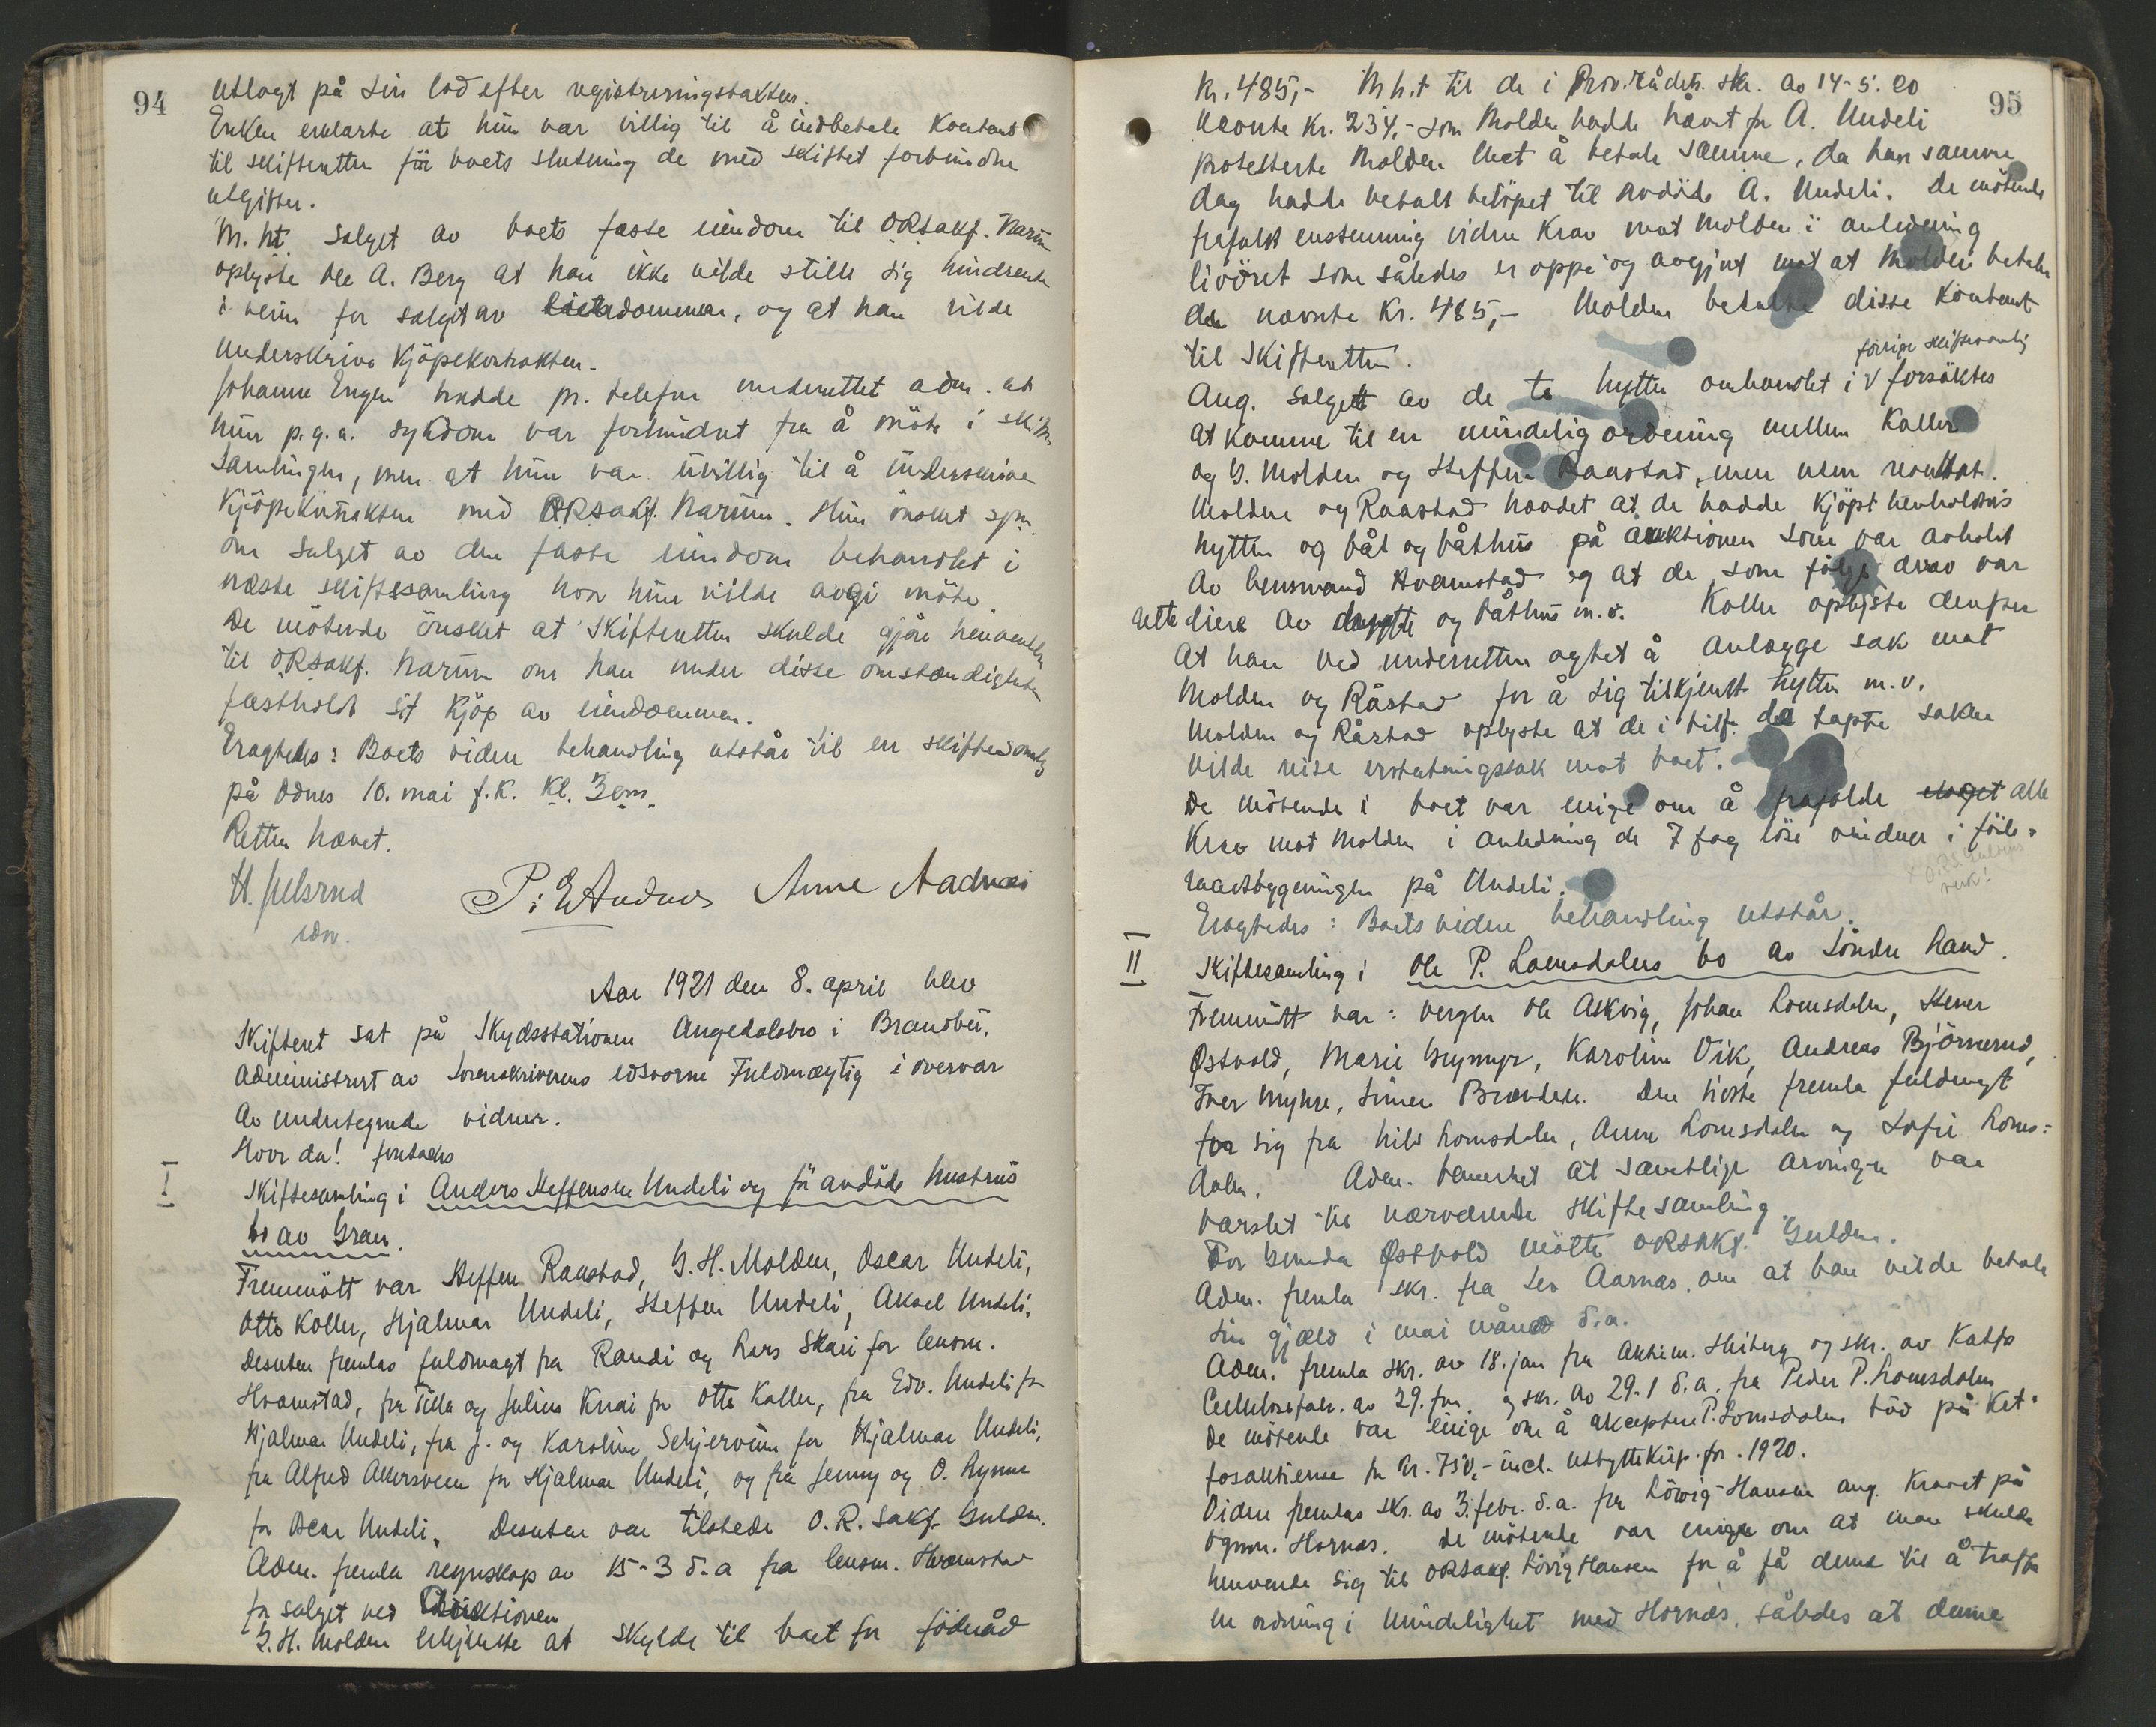 94
utlagt på sin lod efter registreringstaksten.
Enken erklærte at hun var villig til å indbetale kontant
til skifteretten før boets slutning de med skiftet forbundne
utgifter.
M.h.t. salget av boets faste eiendom til ORsakf. Narum
oplyste Ole A. Berg at han ikke vilde stille sig hindrende
i veien for salget av eiendommen, og at han vilde
underskrive kjöpekontrakten.
Johanne Engen hadde pr. telefon underrettet adm. at
hun p.g.a. sykdom var forhindret fra å möte i skifte
samlingen, men at hun var uvillig til å underskrive
kjöpekontrakten med ORsakf. Narum. Hun önsket spm.
om salget av den faste eiendom behandlet i
næste skiftesamling hvor hun vilde avgi möte.
De mötende önsket at skifteretten skulde gjöre henvendelse
til ORsakf. Narum om han under disse omstændigheter
fastholdt sit kjöp av eiendommen.
Eragtedes: Boets videre behandling utstår til en skiftesamling
på Odnes 10. mai f.k. kl. 3 em.
Retten hævet.
H. Jelsrud
edsv.
P. E. Andnes Anne Aadnæs
Aar 1921 den 8. april blev
Skifteret sat på Skydsstationen Augedalsbro i Brandbu,
administrert av Sorenskriverens edsvorne Fuldmægtig i overvær
av undertegnede vidner.
Hvor da! foretoges
I
Skiftesamling i Anders Steffensen Undeli og før avdöde hustrus
bo av Gran.
Fremmött var Steffen Raastad, G. H. Molden, Oscar Undeli,
Otto Koller, Hjalmar Undeli, Steffen Undeli, Aksel Undeli.
Desuten fremlas fuldmagt fra Randi og Lars Skari for lensm.
Hvamstad, fra Tilla og Julius Knai for Otto Koller, fra Edv. Undeli for
Hjalmar Undeli, fra J. og Karoline Schjerveim for Hjalmar Undeli,
fra Alfred Akersveen for Hjalmar Undeli, og fra Jenny og O. Lynne
for Oscar Undeli. Desuten var tilstede O.R. Sakf. Gulden.
Adm. fremla regnskap av 15-3 d.a fra lensm. Hvamstad
for salget ved auktionen
G. H. Molden erkjendte at skylde til boet for föderåd
95
kr. 485,- M.h.t til de i Prov.rådets. skr. av 14-5.20
nævnte kr. 234,- som Molden hadde hævet for A. Undeli
protesterte Molden mot å betale samme, da han samme
dag hadde betalt belöpet til avdöde A. Undeli. De mötende
frafaldt enstemmig videre krav mot Molden i anledning
livöret som således er oppe og avgjort mot at Molden betaler
de nævnte kr. 485,- Molden betalte disse kontant
til Skifteretten.
forrige skiftesamling
Ang. salget av de to hytter omhandlet i V forsöktes
at komme til en mindelig ordning mellem Koller
og G. Molden og Steffen Raastad, men uten resultat.
Molden og Raastad hævdet at de hadde kjöpt henholdsvis
hytten og båt og båthus på auktionen som var avholdt
av lensmand Hvamstad og at de som fölge derav var
rette eiere av hytte og båthus m.v. Koller oplyste derefter
at han ved underretten agtet å anlægge sak mot
Molden og Råstad for å sig tilkjendt hytten m.v.
Molden og Råstad oplyste at de i tilf. de tapte saken
vilde reise erstatningssak mot boet.
De mötende i boet var enige om å frafalde noget alle
krav mot Molden i anledning de 7 fag löse vinduer i föde-
raadsbygningen på Undeli.
Eragtedes: Boets videre behandling utstår.
II
Skiftesamling i Ole P. Lomsdalens bo av Söndre Land.
Fremmött var: vergen Ole Askvig, Johan Lomsdalen, Stener
Østvold, Marie Grymyr, Karoline Vik, Andreas Björnerud,
Iver Myhre, Simen Brænden. Den sidste fremla fuldmagt
for sig fra Nils Lomsdalen, Anne Lomsdalen og Sofie Loms-
dalen. Adm. bemerket at samtlige arvinger var
varslet til nærværende skiftesamling.
For Gunda Østvold mötte ORsakf. Gulden.
Adm. fremla skr. fra Lev Aarnæs om at han vilde betale
sin gjæld i mai måned d.a.
Adm. fremla skr. av 18. jan fra Anth. Heiberg og skr. av Katfos
Cellulosefabr. av 29. f.m. og skr. av 29-1 d.a. fra Peder P. Lomsdalen
De mötende var enige om å akceptere P. Lomsdalens bud på Kat-
fosaktierne for kr. 750,- incl. utbyttekup. for 1920.
Videre fremlas skr. av 3. febr. d.a. fra Lövig-Hansen ang. kravet på
Hornæs. De mötende var enige om at man skulde
henvende sig til ORsakf. Lövig Hansen for å få denne til å træffe
en ordning i mindelighet med Hornæs, således at denne